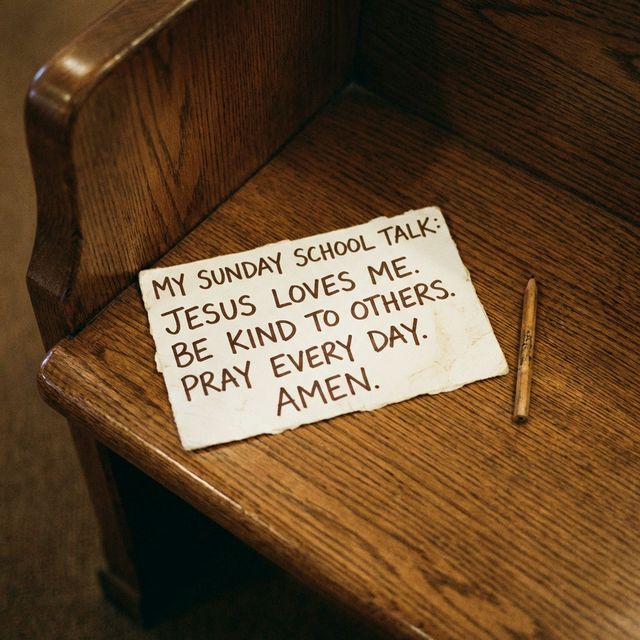 MY SUNDAY SCHOOL TALK:
JESUS LOVES ME.
BE KIND TO OTHERS.
PRAY EVERY DAY.
AMEN.